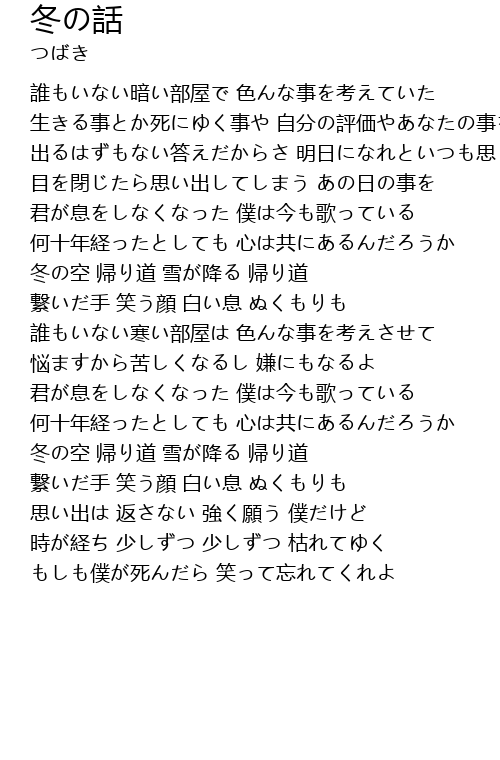 冬の話
つばき
誰もいない暗い部屋で 色んな事を考えていた
生きる事とか死にゆく事や 自分の評価やあなたの事
出るはずもない答えだからさ 明日になれといつも思
目を閉じたら思い出してしまう あの日の事を
君が息をしなくなった 僕は今も歌っている
何十年経ったとしても 心は共にあるんだろうか
冬の空 帰り道 雪が降る 帰り道
繋いだ手 笑う顔 白い息 ぬくもりも
誰もいない寒い部屋は 色んな事を考えさせて
悩ますから苦しくなるし 嫌にもなるよ
君が息をしなくなった 僕は今も歌っている
何十年経ったとしても 心は共にあるんだろうか
冬の空 帰り道 雪が降る 帰り道
繋いだ手 笑う顔 白い息 ぬくもりも
思い出は 返さない 強く願う 僕だけど
時が経ち 少しずつ 少しずつ 枯れてゆく
もしも僕が死んだら 笑って忘れてくれよ